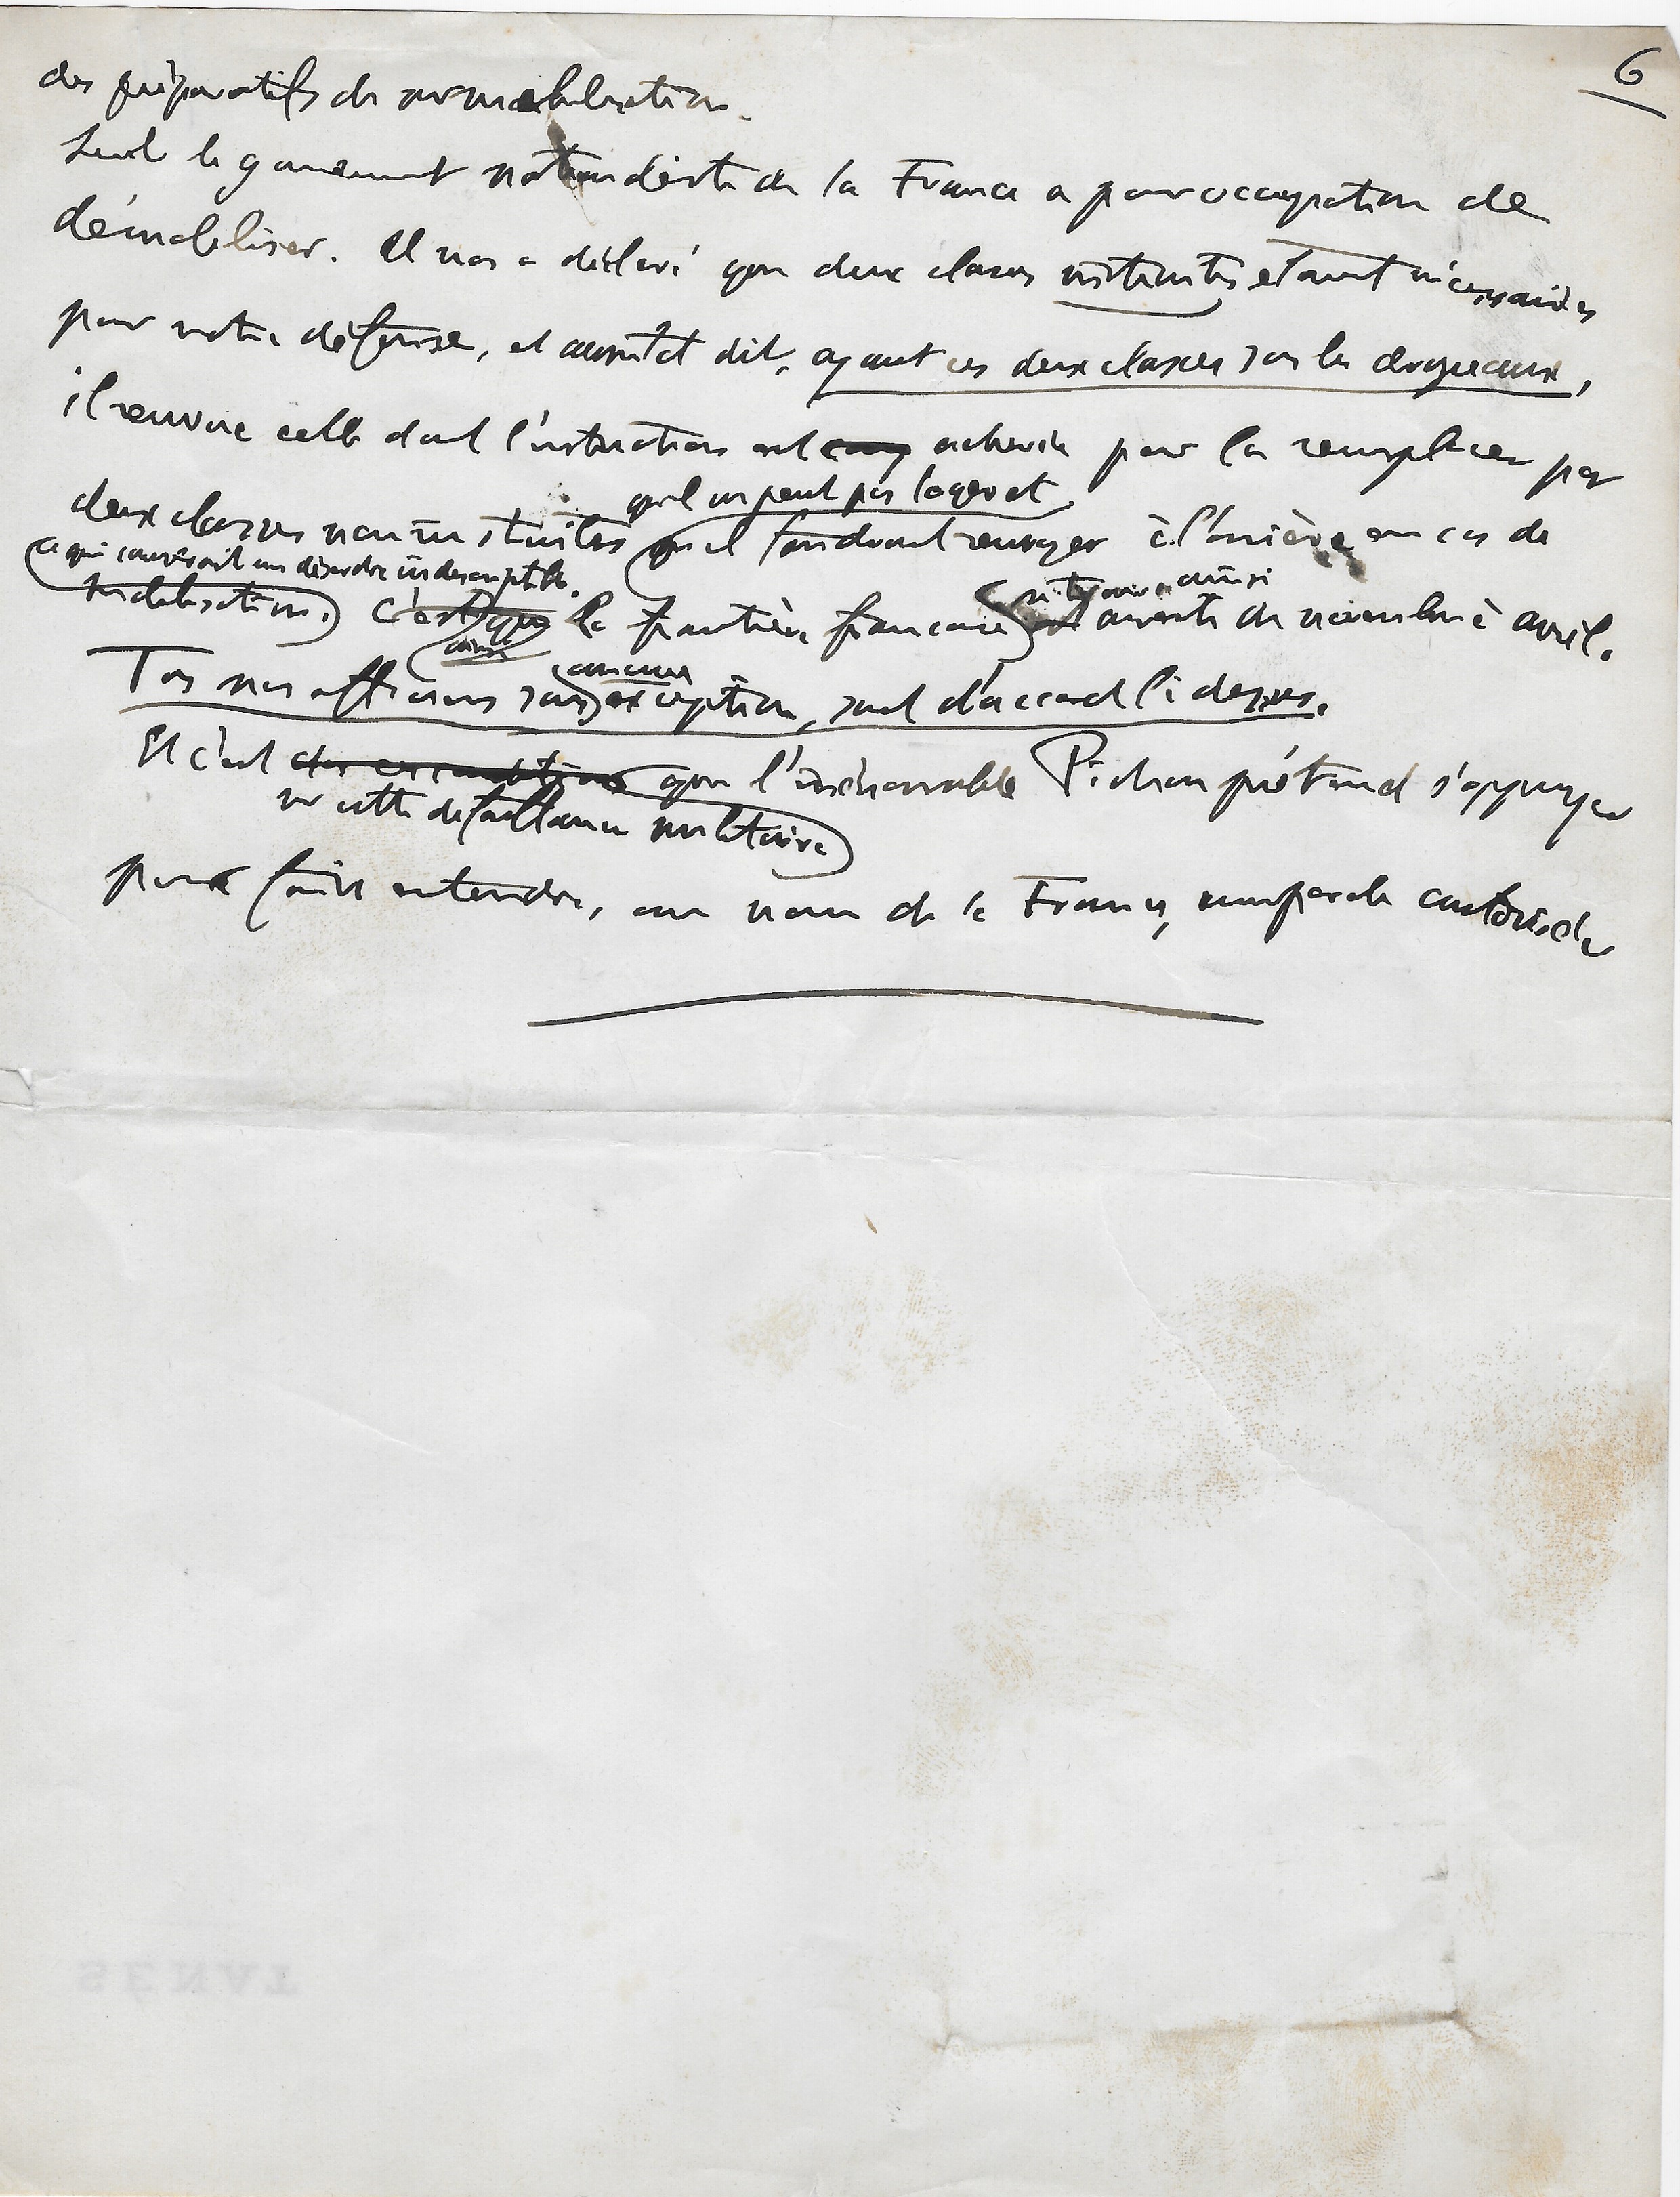 6
des préparatifs de mobilisation.
Seul le gouvernement de la France a pour occupation de
démobiliser. Il nous a déclaré que deux classes instruites étaient nécessaires
pour notre défense, et aussitôt dit, ayant ces deux classes sous les drapeaux,
il renvoie celle dont l'instruction est achevée pour la remplacer par
qu'il ne peut pas loger et
deux classes non instruites qu'il faudrait renvoyer à l'arrière en cas de
ce qui causerait un désordre indescriptible.
mobilisation. C'est que la frontière française est ouverte de novembre à avril.
se trouve ainsi
ainsi
aucune
Tous nos officiers sans exception, sont d'accord là dessus.
Et c'est que l'inénarrable Pichon prétend s'appuyer
sur cette défaillance militaire
pour faire entendre, au nom de la France,